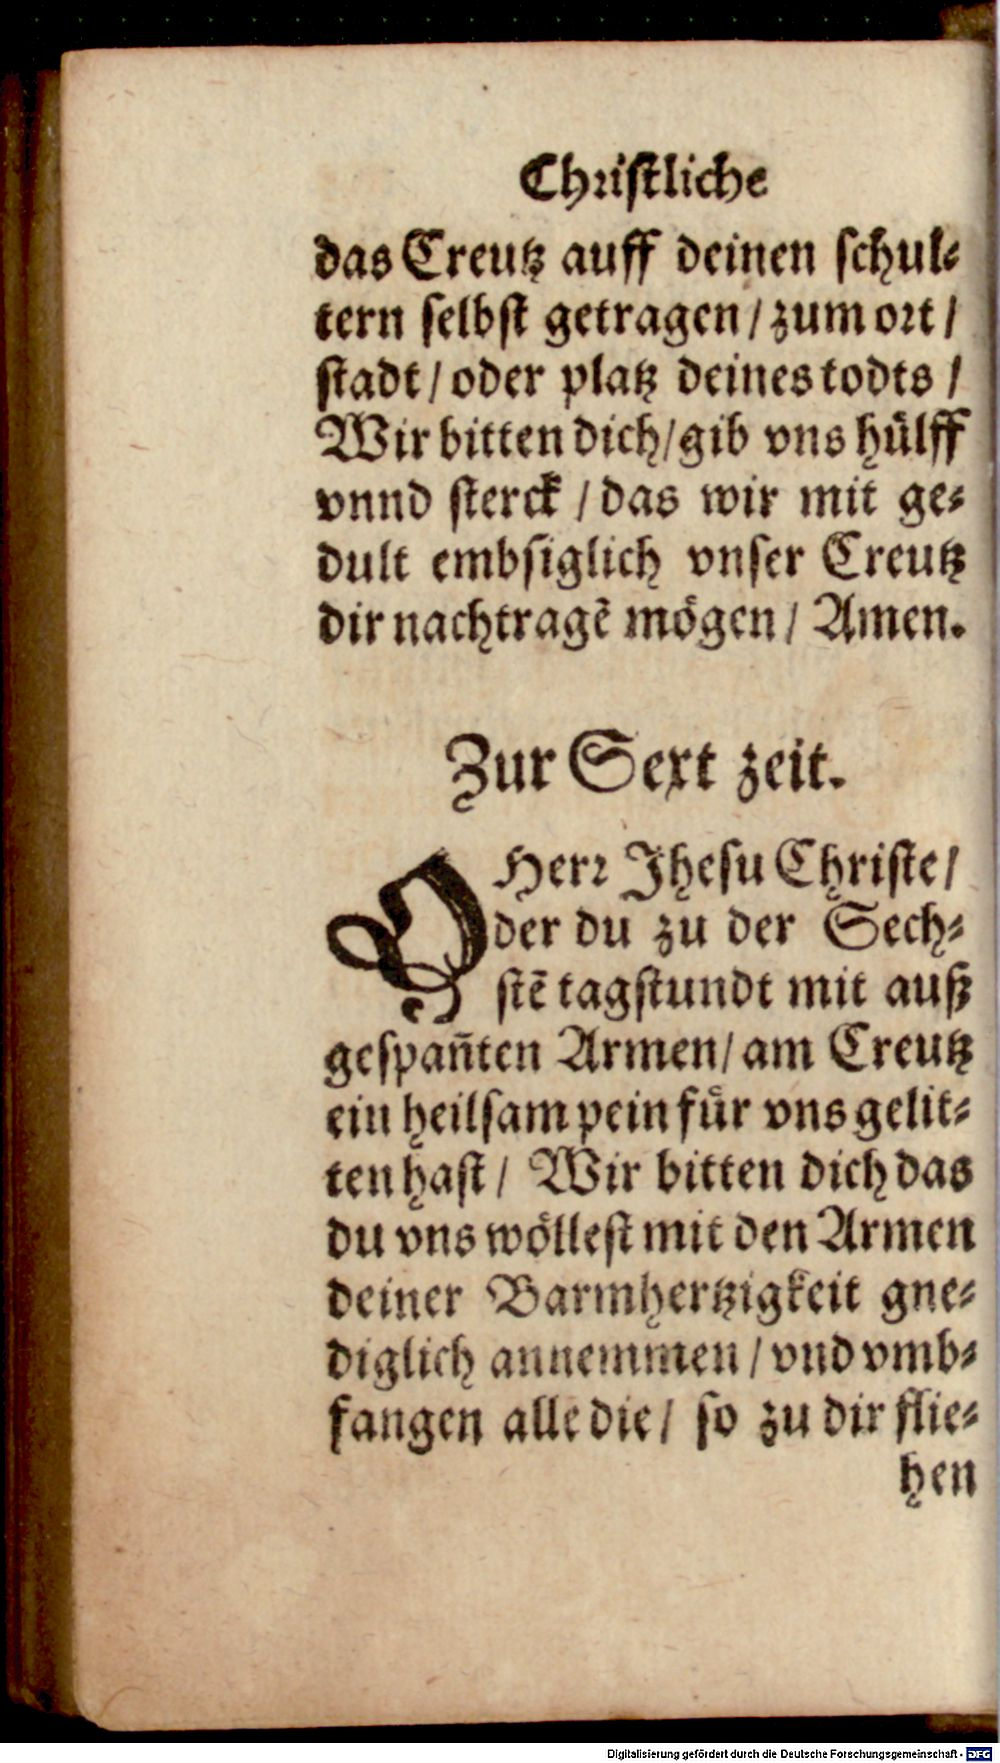 Christliche
das Creutz auff deinen schul⸗
tern selbst getragen / zum ort /
stadt / oder platz deines todts /
Wir bitten dich / gib vns hülff
vnnd sterck / das wir mit ge⸗
dult embsiglich vnser Creutz
dir nachtragē mögen / Amen.
Zur Sext zeit.
O Herr Jhesu Christe /
der du zu der Sech⸗
stē tagstundt mit auß
gespañten Armen / am Creutz
ein heilsam pein für vns gelit⸗
ten hast / Wir bitten dich das
du vns wöllest mit den Armen
deiner Barmhertzigkeit gne⸗
diglich annemmen / vnd vmb⸗
fangen alle die / so zu dir flie⸗
hen
Digitalisierung gefördert durch die Deutsche Forschungsgemeinschaft - DFG